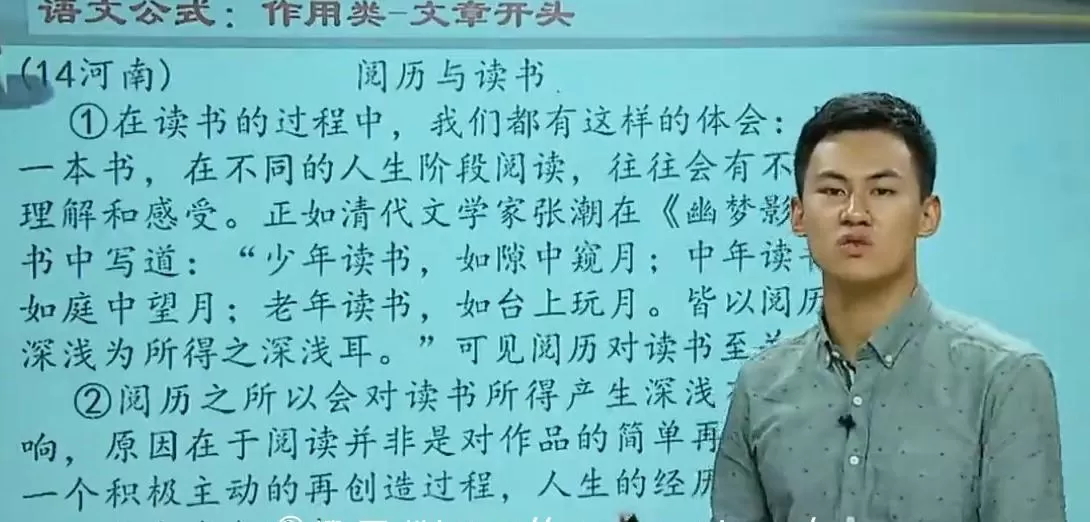 语文公式：作用类-文章开头
(14河南) 阅历与读书
①在读书的过程中，我们都有这样的体会：
一本书，在不同的人生阶段阅读，往往会有不
理解和感受。正如清代文学家张潮在《幽梦影
书中写道：“少年读书，如隙中窥月；中年读
如庭中望月；老年读书，如台上玩月。皆以阅历
深浅为所得之深浅耳。”可见阅历对读书至关
②阅历之所以会对读书所得产生深浅
响，原因在于阅读并非是对作品的简单再
一个积极主动的再创造过程，人生的经历